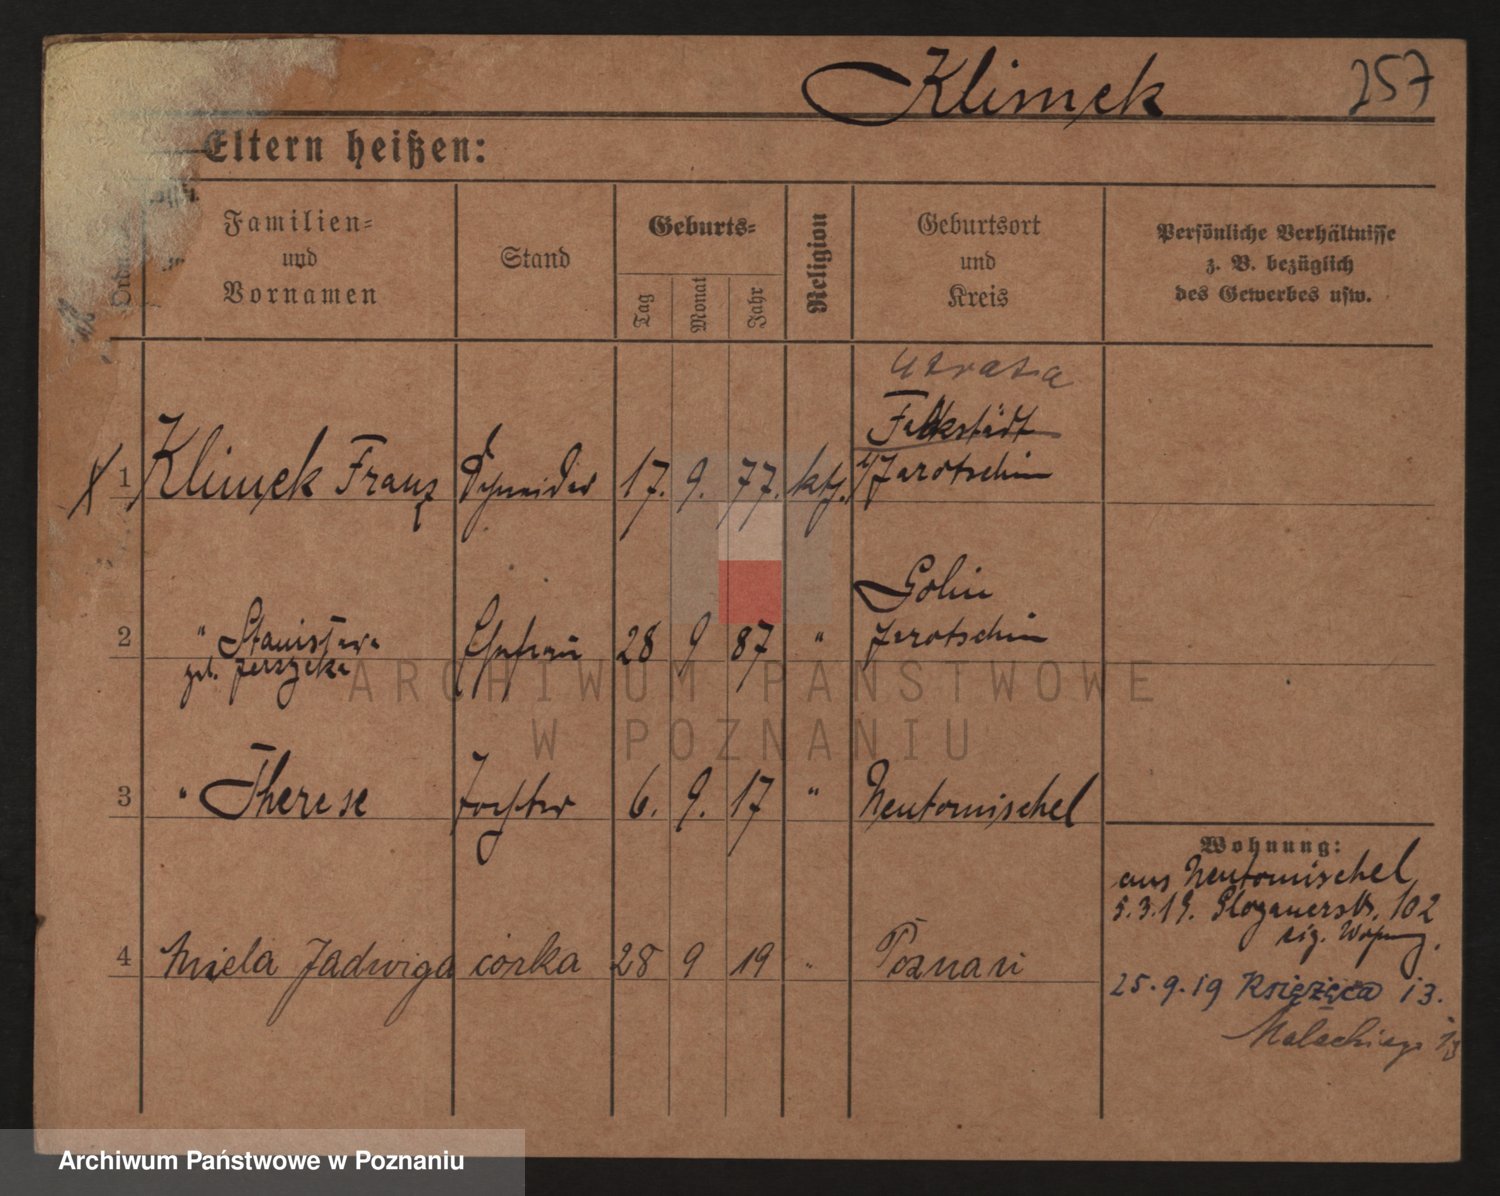 Klimek 257
Eltern heißen:
Familien=
und
Vornamen
Stand
Geburts=
Tag
Monat
Jahr
Religion
Geburtsort
und
Kreis
Persönliche Verhältnisse
z. B. bezüglich
des Gewerbes usw.
Utrata
1 Klimek Franz Schneider 17. 9. 77. kth. Falkstädt
Jarotschin
2 " Stanislawa Ehefrau 28 9 87 " Golin
geb. Jarotschin
3 " Therese Tochter 6. 9. 17 " Neutomischel
Wohnung:
aus Neutomischel
5.3.19. Glogauerstr. 102
eig. Wohnung.
4 Aniela Jadwiga córka 28 9 19 " Poznań
25.9.19 Książęca 13.
Malackiego
ARCHIWUM PAŃSTWOWE
W POZNANIU
Archiwum Państwowe w Poznaniu